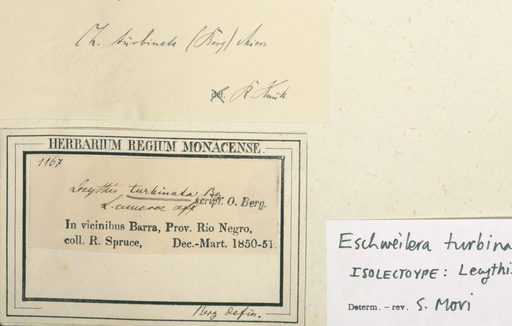 Ch. turbinata (Berg) Miers
det. R. Knuth
HERBARIUM REGIUM MONACENSE.
1167
Lecythis turbinata Bg.
script. O. Berg.
In vicinibus Barra, Prov. Rio Negro,
coll. R. Spruce, Dec.-Mart. 1850-51.
Berg defin.
Eschweilera turbina
ISOLECTOYPE: Lecythi
Determ. – rev. S. Mori